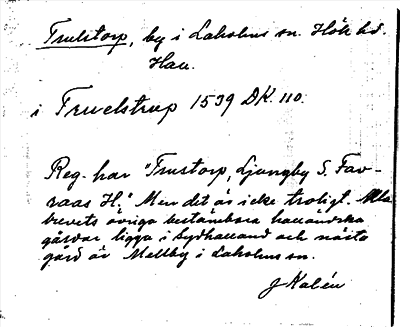 Trulstorp, by i Laholms sn. Höks hd.
Hall.
i Truelstrup 1539 DK. 110.
Reg. har "Trustorp, Ljungby S. Fav-
raas H." Men det är icke troligt. Alla
brevets övriga bestämbara halländska
gårdar ligga i Sydhalland och nästa
gård är Mellby i Laholms sn.
J Kalén